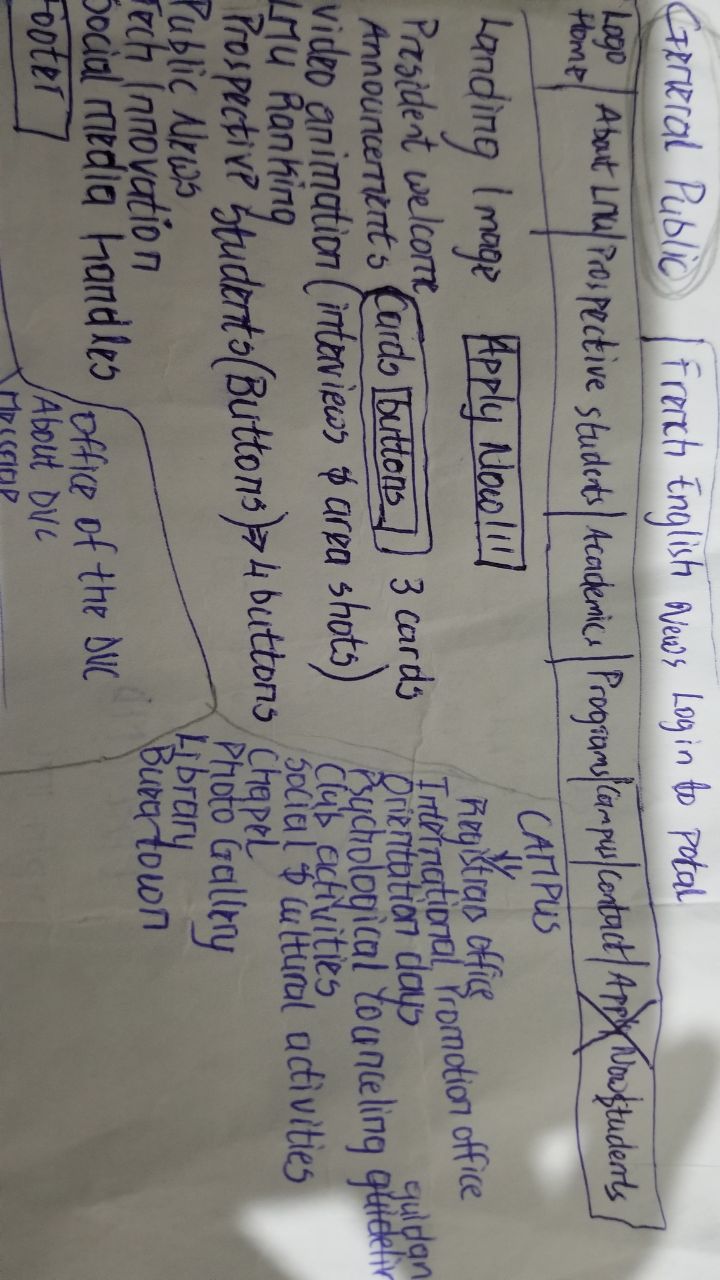 General Public
French English News Login to Potal
Logo
Home | About LMU | Prospective students | Academics | Programs | Campus | Contact | Apply Now | Students
Landing Image Apply Now!!!
President welcome
Announcements Cards buttons 3 cards
Video animation (interviews $ area shots)
LMU Ranking
Prospective students (Buttons) => 4 buttons
Public News
Tech Innovation
Social media handles
Footer
CAMPUS
Registras office
International Promotion office
Orientation days
Psychological Counceling guidelin guidan
Club activities
Social $ cultural activities
Chapel
Photo Gallery
Library
Buеаtown
Office of the DVC
About DVC
Message